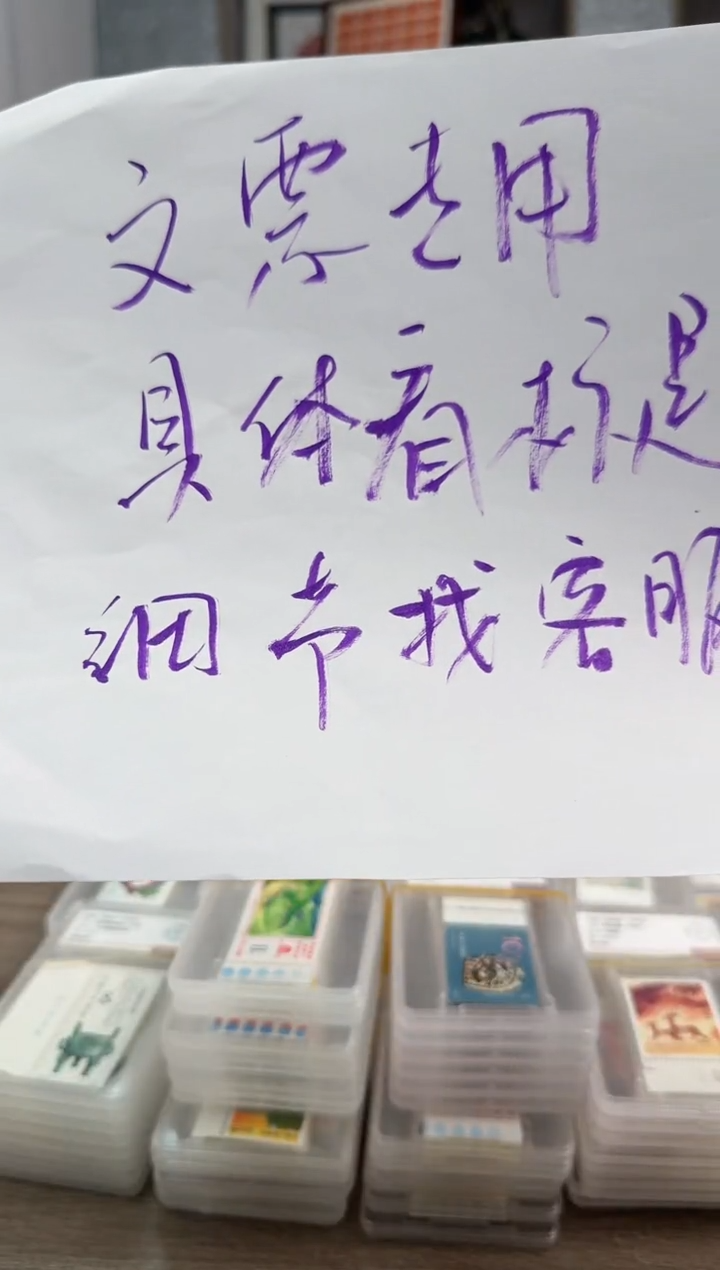 文票专用
具体看标题
细节找客服